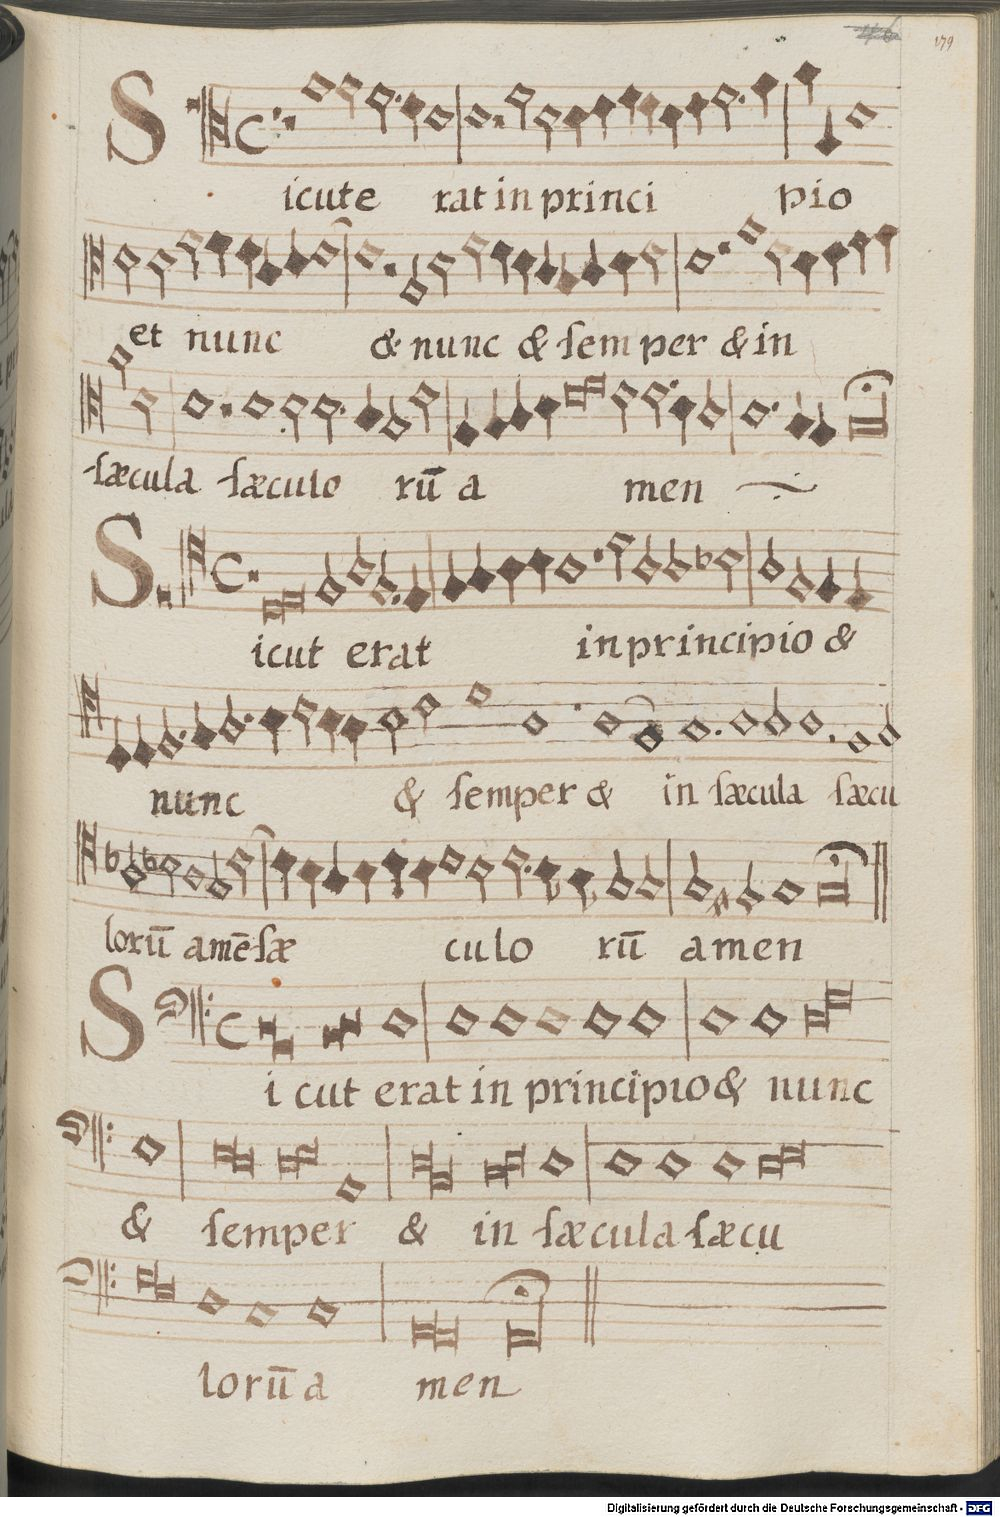 179
Sicute rat in princi pio
et nunc & nunc & semper & in
sæcula sæculo rū a men
Sicut erat in principio &
nunc & semper & in sæcula sæcu
lorū amē sæ culo rū amen
Si cut erat in principio & nunc
& semper & in sæcula sæcu
lorū a men
Digitalisierung gefördert durch die Deutsche Forschungsgemeinschaft - DFG